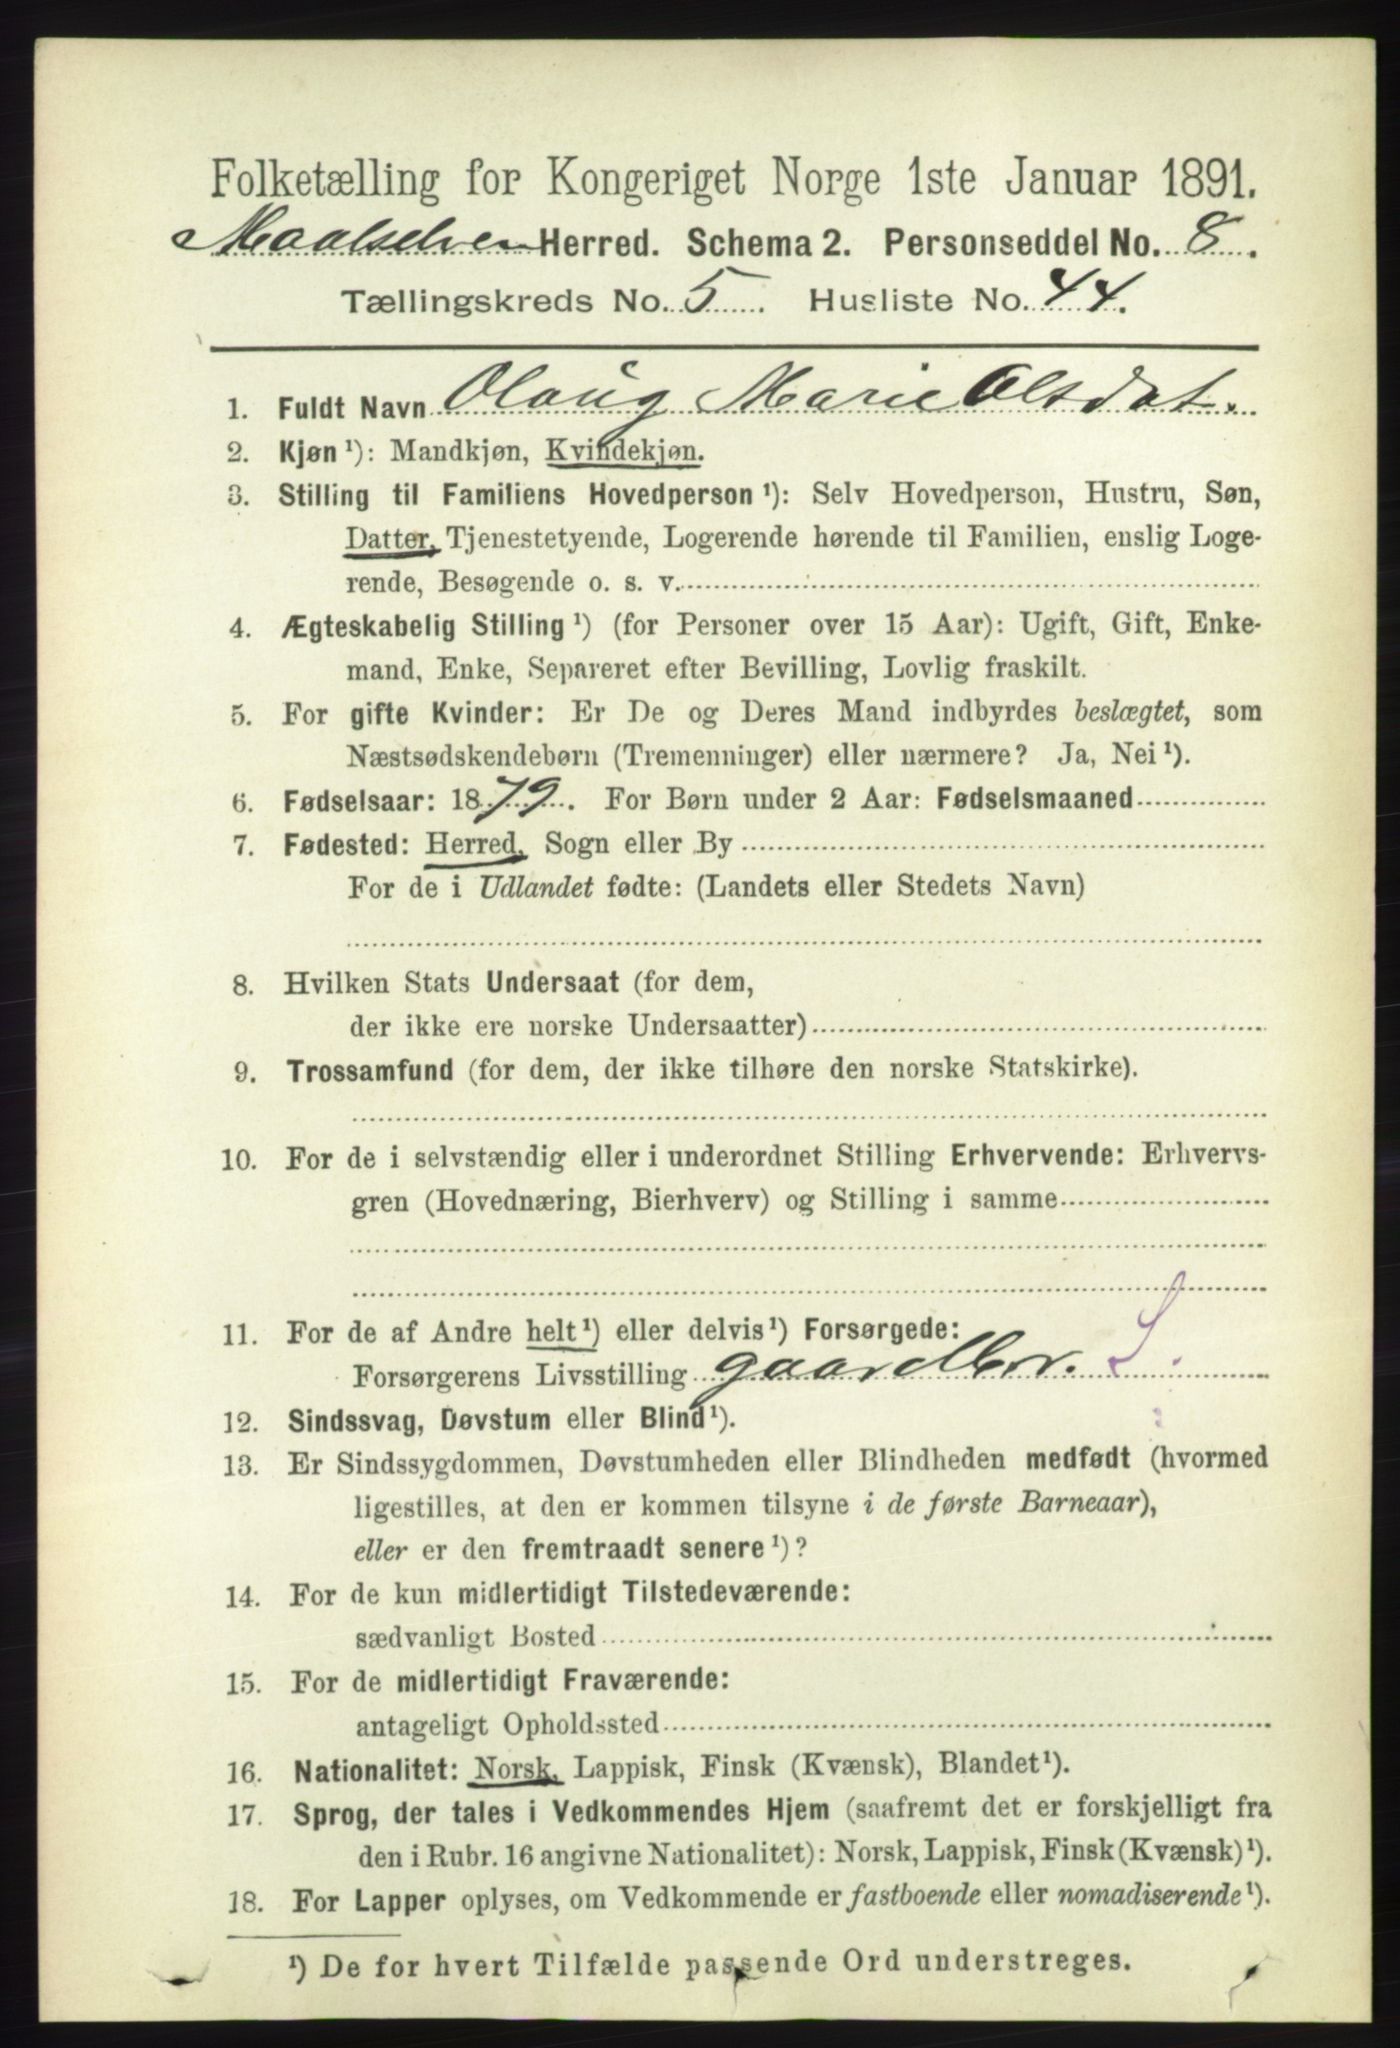 Folketælling for Kongeriget Norge 1ste Januar 1891.
Maalselven Herred. Schema 2. Personseddel No. 8.
Tællingskreds No. 5. Husliste No. 44.
1. Fuldt Navn Olaug Marie Olsdat.
2. Kjøn ¹): Mandkjøn, Kvindekjøn.
3. Stilling til Familiens Hovedperson ¹): Selv Hovedperson, Hustru, Søn,
Datter, Tjenestetyende, Logerende hørende til Familien, enslig Loge-
rende, Besøgende o. s. v.
4. Ægteskabelig Stilling ¹) (for Personer over 15 Aar): Ugift, Gift, Enke-
mand, Enke, Separeret efter Bevilling, Lovlig fraskilt.
5. For gifte Kvinder: Er De og Deres Mand indbyrdes beslægtet, som
Næstsødskendebørn (Tremenninger) eller nærmere? Ja, Nei ¹).
6. Fødselsaar: 1879. For Børn under 2 Aar: Fødselsmaaned
7. Fødested: Herred, Sogn eller By
For de i Udlandet fødte: (Landets eller Stedets Navn)
8. Hvilken Stats Undersaat (for dem,
der ikke ere norske Undersaatter)
9. Trossamfund (for dem, der ikke tilhøre den norske Statskirke).
10. For de i selvstændig eller i underordnet Stilling Erhvervende: Erhvervs-
gren (Hovednæring, Bierhverv) og Stilling i samme
11. For de af Andre helt ¹) eller delvis ¹) Forsørgede:
Forsørgerens Livsstilling gaardbr. S.
12. Sindssvag, Døvstum eller Blind ¹).
13. Er Sindssygdommen, Døvstumheden eller Blindheden medfødt (hvormed
ligestilles, at den er kommen tilsyne i de første Barneaar),
eller er den fremtraadt senere ¹)?
14. For de kun midlertidigt Tilstedeværende:
sædvanligt Bosted
15. For de midlertidigt Fraværende:
antageligt Opholdssted
16. Nationalitet: Norsk, Lappisk, Finsk (Kvænsk), Blandet ¹).
17. Sprog, der tales i Vedkommendes Hjem (saafremt det er forskjelligt fra
den i Rubr. 16 angivne Nationalitet): Norsk, Lappisk, Finsk (Kvænsk) ¹).
18. For Lapper oplyses, om Vedkommende er fastboende eller nomadiserende ¹).
¹) De for hvert Tilfælde passende Ord understreges.